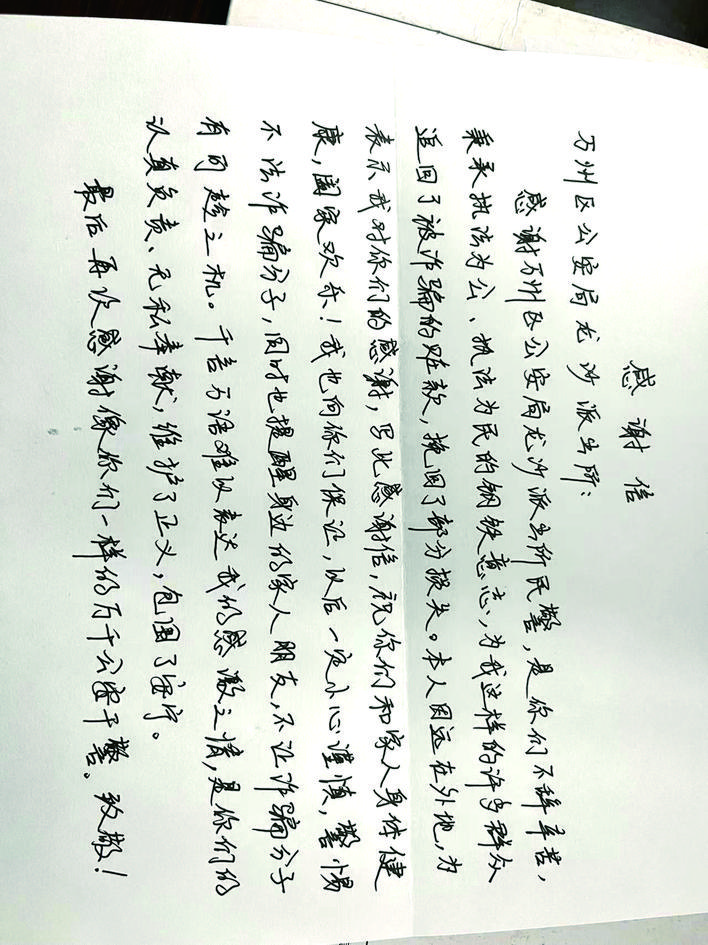 感谢信
万州区公安局龙沙派出所：
感谢万州区公安局龙沙派出所民警，是你们不辞辛苦，
秉承执法为公、执法为民的钢铁意志，为我这样的许多群众
追回了被诈骗的赃款，挽回了部分损失。本人因远在外地，为
表示我对你们的感谢，写此感谢信，祝你们和家人身体健
康，阖家欢乐！我也向你们保证，以后一定小心谨慎，警惕
不法诈骗分子，同时也提醒身边的家人朋友，不让诈骗分子
有可趁之机。千言万语难以表达我的感激之情，是你们的
认真负责、无私奉献，维护了正义，包围了安宁。
最后再次感谢像你们一样的万千公安干警。致敬！